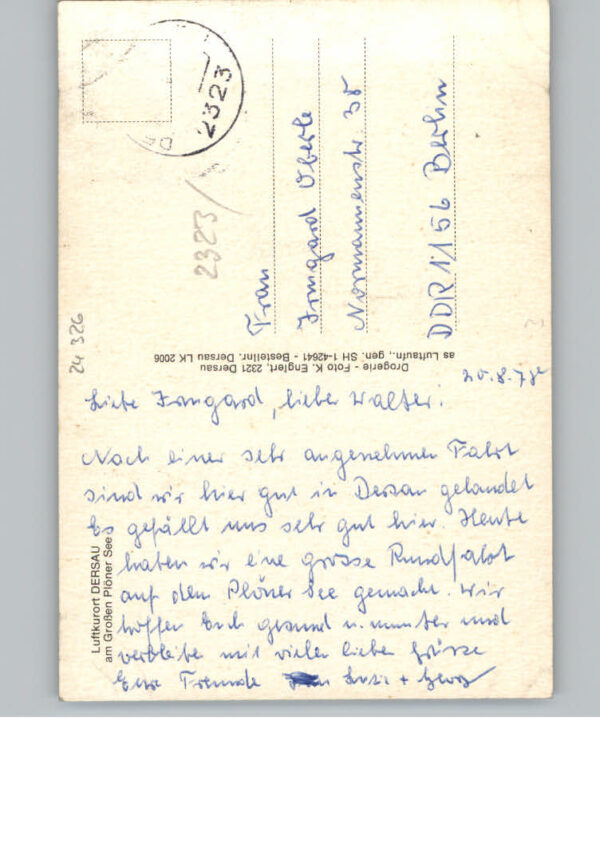 2323
2323
Frau
Irmgard Oberle
Normannenstr. 38
DDR 1156 Berlin
24 326
Drogerie - Foto K. Englert, 2321 Dersau
as Luftaufn., gen. SH 1-42641 - Bestellnr. Dersau LK 2006
Luftkurort DERSAU
am Großen Plöner See
20.8.78
Liebe Irmgard, lieber Walter!
Nach einer sehr angenehmen Fahrt
sind wir hier gut in Dersau gelandet
Es gefällt uns sehr gut hier. Heute
haben wir eine grosse Rundfahrt
auf dem Plöner See gemacht. Wir
hoffen Euch gesund u. munter und
verbleibe mit vielen lieben Grüsse
Eure Freunde Luzie + Georg